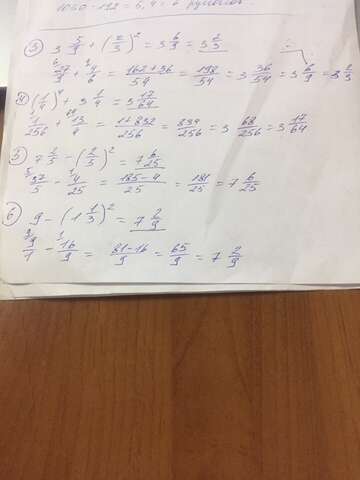 1060 - 192 = 5,4 = 6 рулонов.
3) 3 5/9 + (2/3)² = 3 6/9 = 3 2/3
27/9 + 4/6 = 162+36/54 = 198/54 = 3 36/54 = 3 6/9 = 3 2/3
4) (1/4)⁴ + 3 1/4 = 3 17/64
1/256 + 13/4 = 1+832/256 = 834/256 = 3 68/256 = 3 17/64
5) 7 2/5 - (2/5)² = 7 6/25
37/5 - 4/25 = 185-4/25 = 181/25 = 7 6/25
6) 9 - (1 1/3)² = 7 2/9
9/1 - 16/9 = 81-16/9 = 65/9 = 7 2/9